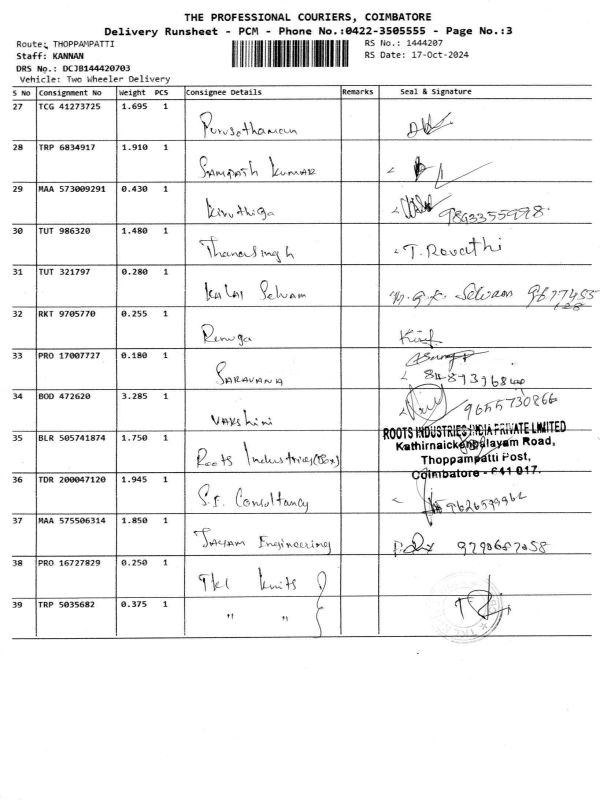 THE PROFESSIONAL COURIERS, COIMBATORE
Delivery Runsheet - PCM - Phone No.:0422-3505555 - Page No.:3
Route: THOPPAMPATTI
RS No.: 1444207
Staff: KANNAN
RS Date: 17-Oct-2024
DRS No.: DCJB144420703
Vehicle: Two Wheeler Delivery
S No Consignment No Weight PCS Consignee Details Remarks Seal & Signature
27 TCG 41273725 1.695 1
Purusothaman
28 TRP 6834917 1.910 1
SAMPATH KUMAR
29 MAA 573009291 0.430 1
Kiruthiga
30 TUT 986320 1.480 1
Thanasingh T. Revathi
31 TUT 321797 0.280 1
KALAI Selvam Selvam
32 RKT 9705770 0.255 1
Renuga
33 PRO 17007727 0.180 1
SARAVANA
34 BOD 472620 3.285 1
VARShini 9655730866
35 BLR 505741874 1.750 1
Roots Industries(Box)
ROOTS INDUSTRIES INDIA PRIVATE LIMITED
Kathirnaickenpalayam Road,
Thoppampatti Post,
Coimbatore - 641 017.
36 TDR 200047120 1.945 1
S.I. Consultancy
37 MAA 575506314 1.850 1
Engineering 9790687058
38 PRO 16727829 0.250 1
TKL Knits
39 TRP 5035682 0.375 1
" "